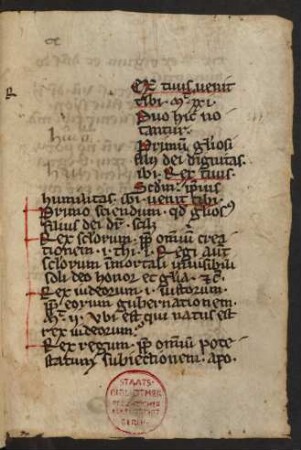 Ex tuus venit
tibi. Mt xxi.
Duo hic no
tantur.
Primū gl̄iosi
filij dei dignitas.
ibi. Rex tuus.
Scdm ipsius
humilitas. ibi. venit tibi.
Primo sciendum. qd gl̄iosꝰ
filius dei dr̄. scilꝫ
Rex sc̄lorum. ꝓp omniū crea
tionem. i. thi. i. Regi aūt
sc̄lorum īmortali īnuisibili
soli deo honor et gl̄ia. ⁊c̄.
Rex iudeorum
ꝓp̄ eorum gubernationem.
Mt. ii. Vbi est qui natus est
rex iudeorum.
Rex regum. ꝓp̄ omniū pote
statum subiectionem. apo.
STAATS-
BIBLIOTHEK
BERLIN